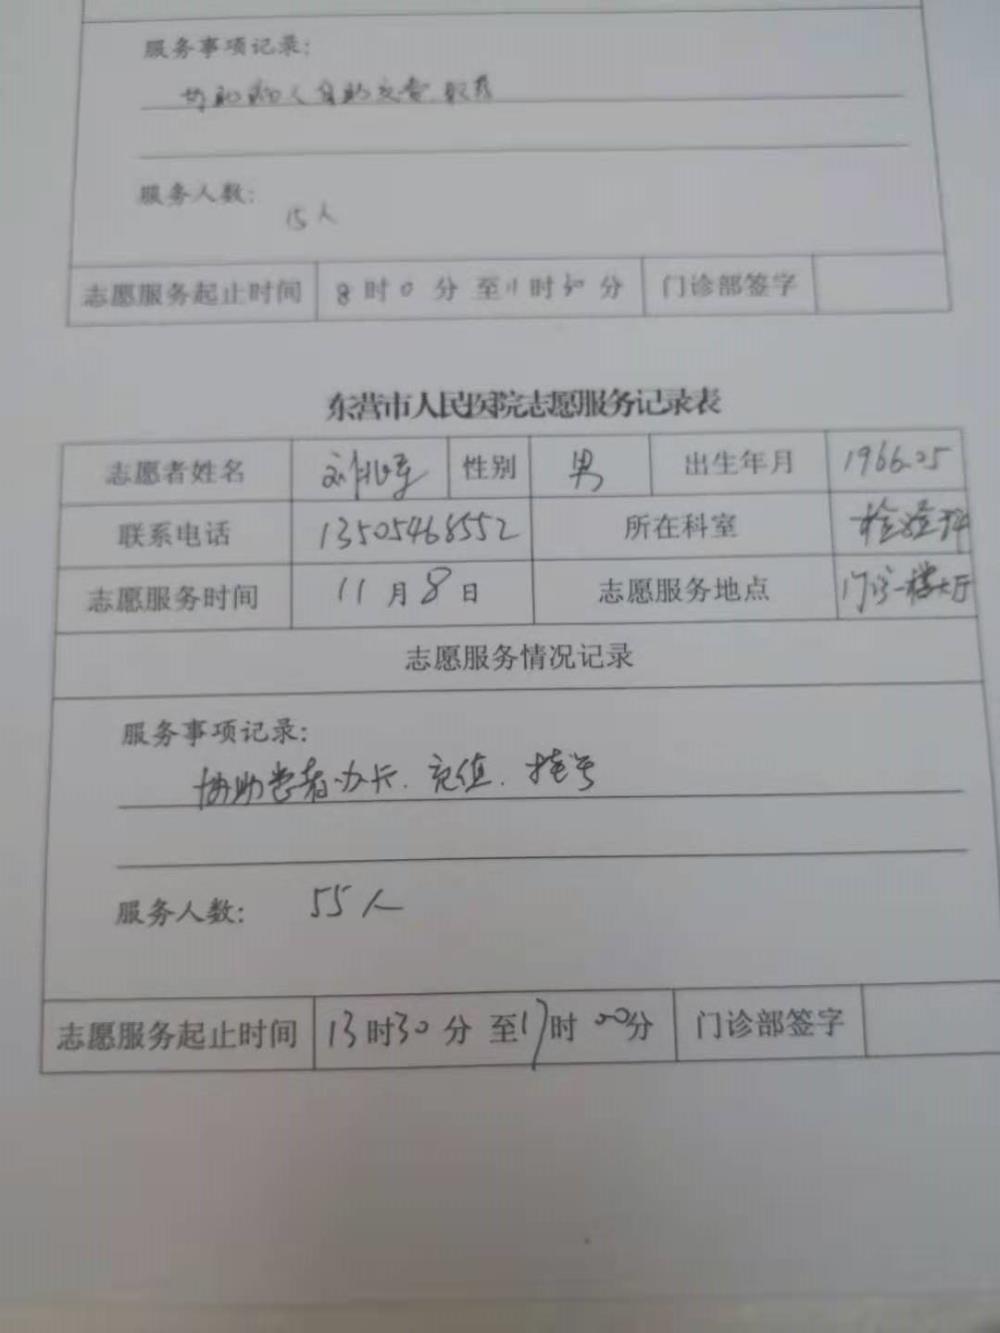 服务事项记录:
协助病人自助交费.取药
服务人数:
15人
志愿服务起止时间 8时0分至11时30分 门诊部签字
东营市人民医院志愿服务记录表
志愿者姓名 刘 性别 男 出生年月 1966.05
联系电话 13505468552 所在科室 检验科
志愿服务时间 11月8日 志愿服务地点 门诊一楼大厅
志愿服务情况记录
服务事项记录:
协助患者办卡.充值.挂号
服务人数: 55人
志愿服务起止时间 13时30分至17时00分 门诊部签字